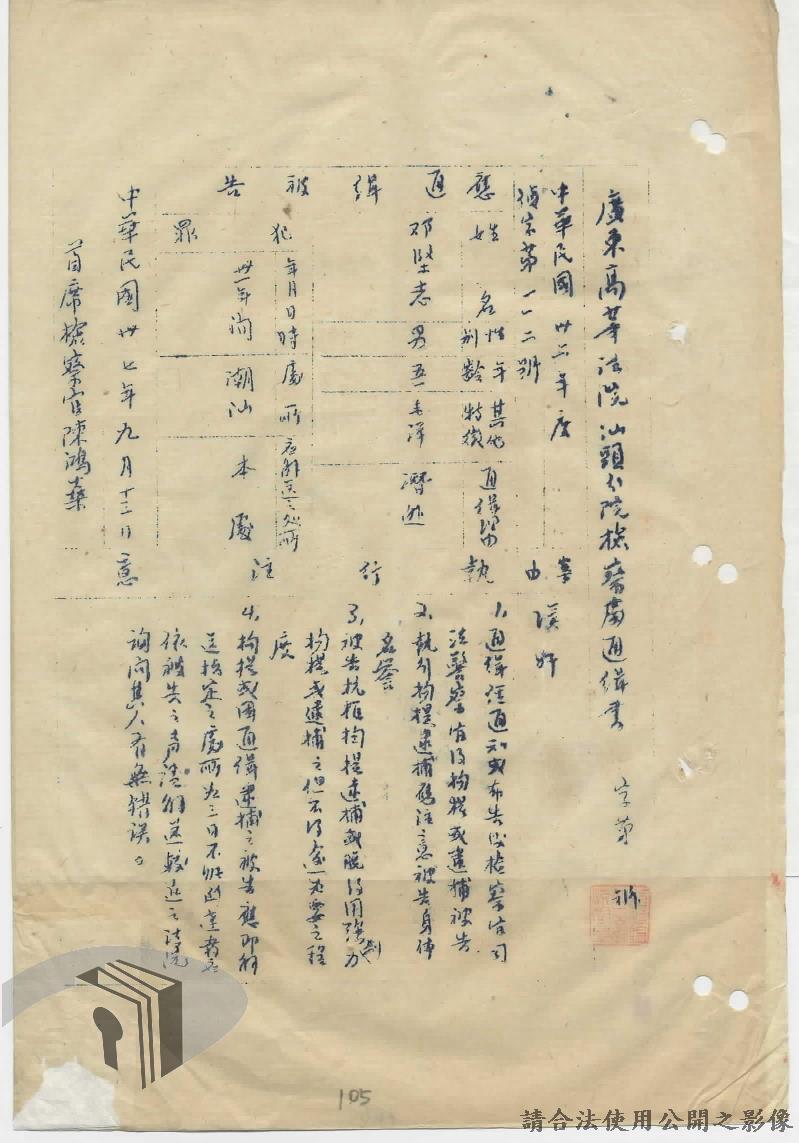 廣東高等法院汕頭分院檢察處通緝書 字第 號
中華民國卅二年度
偵字第一一二號
應通緝被告
姓名 性別 年齡 其他特徵 通緝理由
鄧堅志 男 五一 未詳 潛逃
犯罪
年月日時 處所 應解送之處所
卅一年間 潮汕 本處
中華民國卅七年九月十三日
首席檢察官陳鴻藻
案由 漢奸
執行注意
1、通緝經通知或布告後檢察官司
法警察官得拘提或逮捕被告
2、執行拘提逮捕應注意被告身體
名譽
3、被告抗拒拘提逮捕或脫逃得用強制力
拘提或逮捕之但不得逾必要之程
度
4、拘提或因通緝逮捕之被告應即解
送指定之處所如三日不能達到者應
依被告之聲請解送較近之法院
詢問其人有無錯誤。
105
請合法使用公開之影像